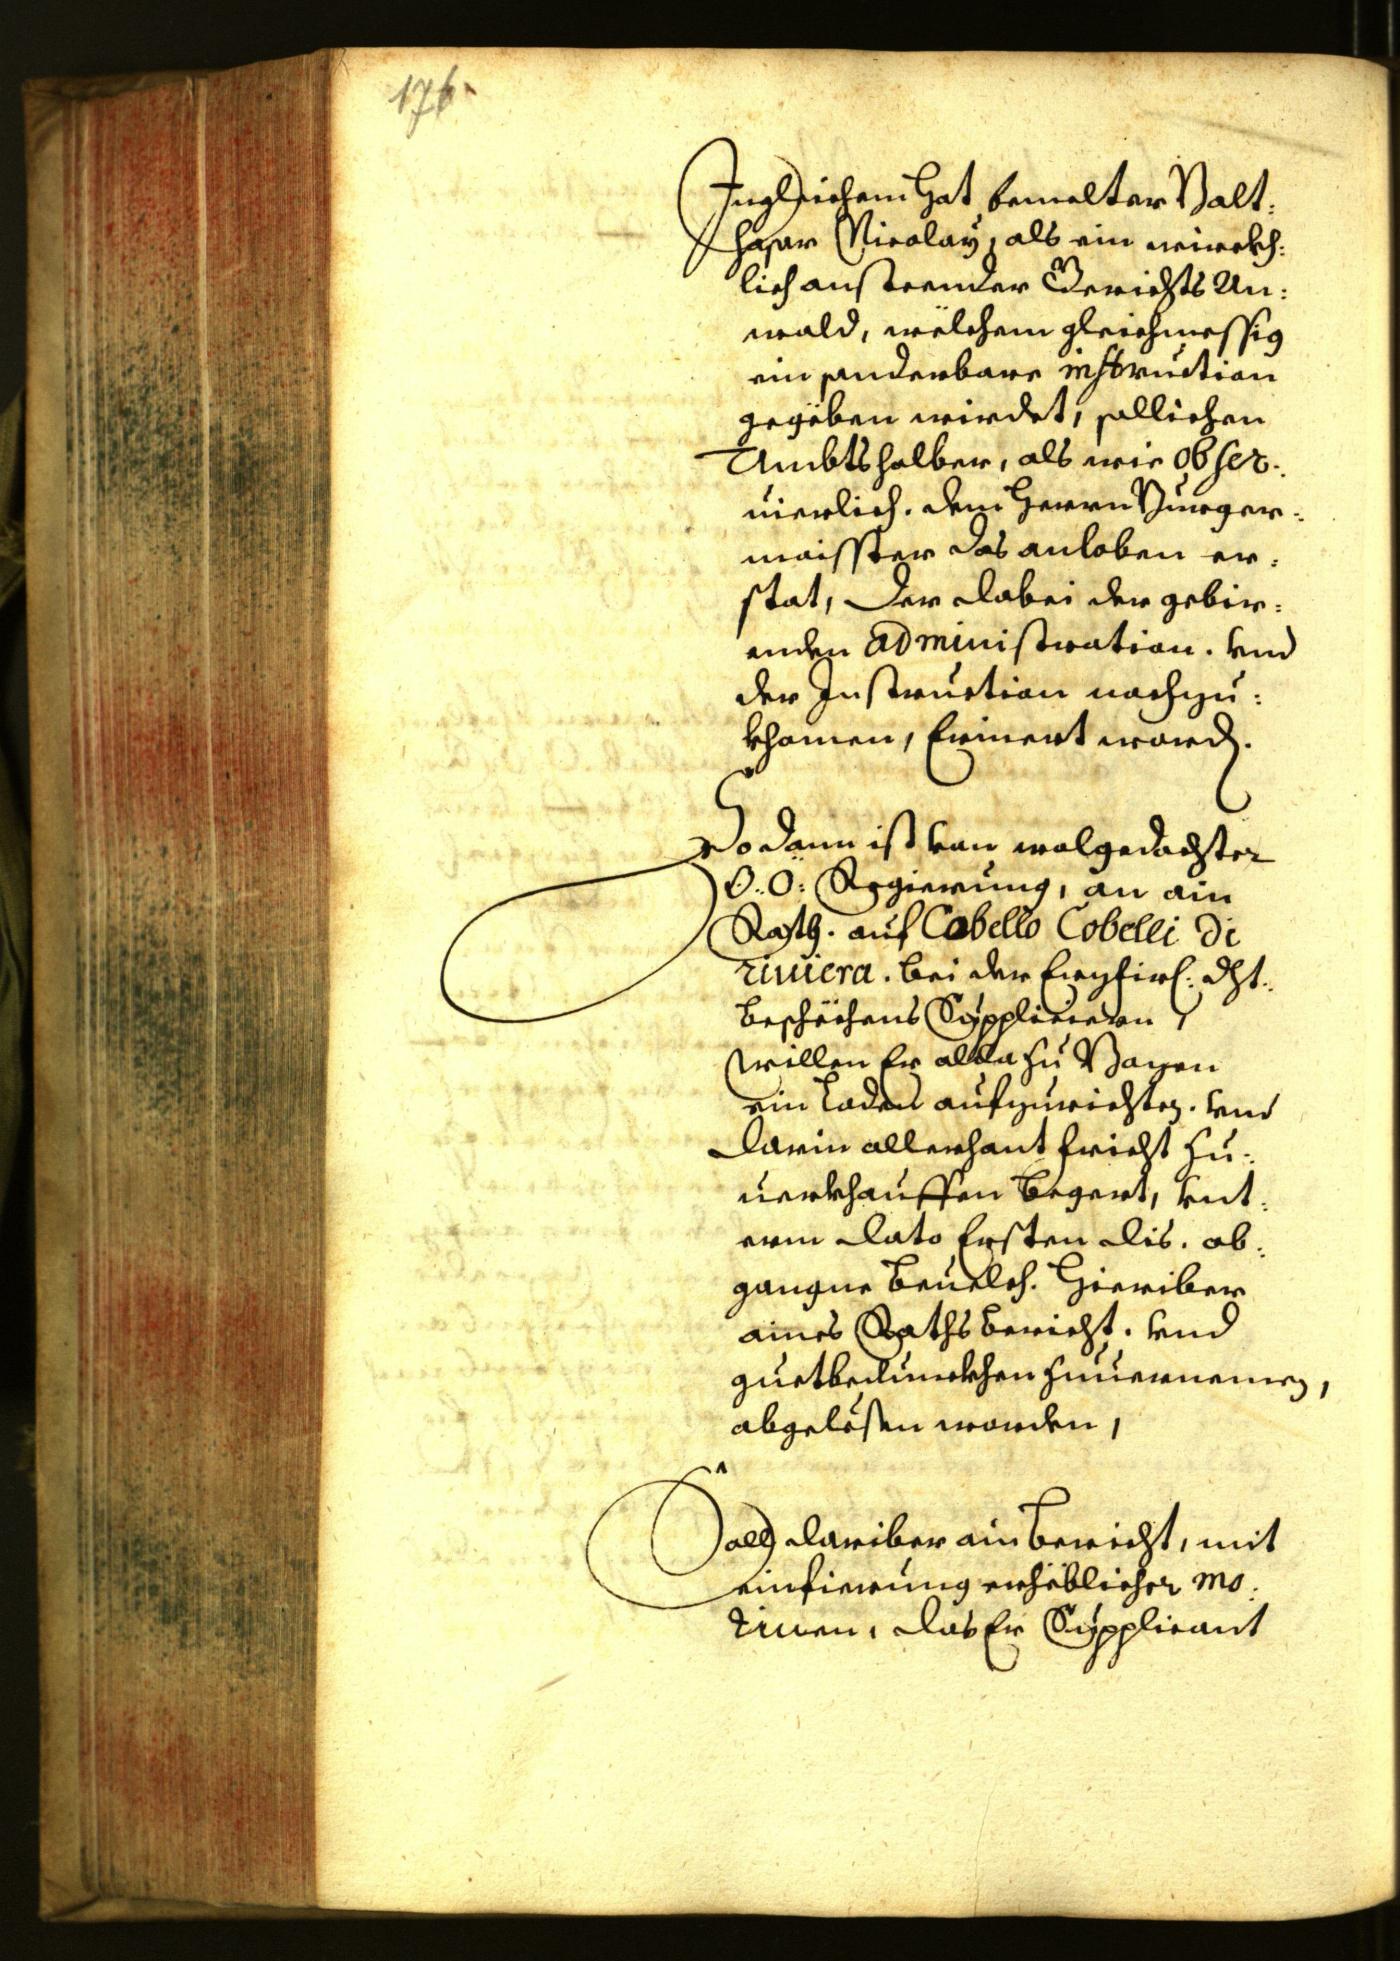 176.
Ingleichem hat bemelter Balt:
hasar Nicolaÿ, als ein wirckh:
lich anstender Gerichts An:
wald, wëlchem gleichmessig
ein sonderbare instruction
gegëben wirdet, sollichen
Ambtshalber, als wie obser:
uierlich. dem Herrn Burger:
maisster das anloben er:
stat, Der dabei der gebir:
enden administration. vnd
der Instruction nachzu:
khomen, Erinert word.
So dann ist von wolgedachter
O: Ö: Regierung, an ain
Rath. auf Cobello Cobelli di
riuiera. bei der Erzfirl: dht:
beschëchens Supplicieren,
willen Er alda zu Bozen
ein Laden aufzurichten. vnd
darin allerhant fricht zu:
uerkhauffen begert, vnt:
erm dato Ersten dis. ab:
gangne beuelch. Hieriber
aines Raths bericht. vnd
guetbedunckhen zuuernemen,
abgelësen worden,
Soll dariber ain bericht, mit
einfierung erhëblicher mo:
tiuen, das Er Supplicant